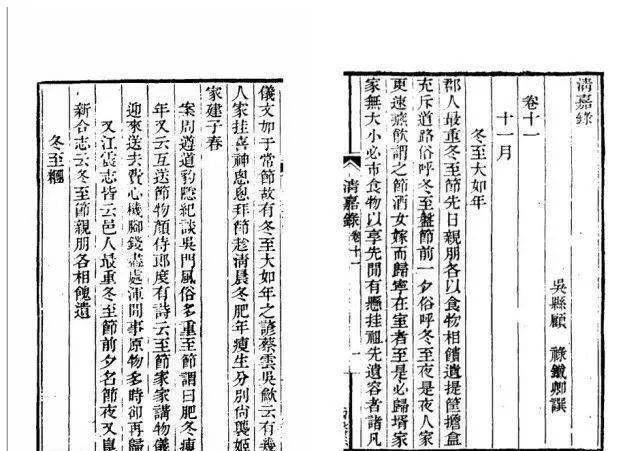 清嘉錄
卷十一
吳縣顧 祿鐵卿譔
十一月
冬至大如年
郡人最重冬至節先日親朋各以食物相饋遺提筐擔盒
充斥道路俗呼冬至盤節前一夕俗呼冬至夜是夜人家
更速燕飲謂之節酒女嫁而歸寧在室者至是必歸壻家
家無大小必市食物以享先間有懸挂祖先遺容者諸凡
清嘉錄 卷十一 一
儀文如于常節故有冬至大如年之諺蔡雲吳歈云有幾
人家挂喜神悤悤拜節趁清晨冬肥年瘦生分別尙襲姬
家建子春
案周遵道豹隱紀談吳門風俗多重至節謂曰肥冬瘦
年又云互送節物顏侍郎度有詩云至節家家講物儀
迎來送去費心機腳錢盡處渾間事原物多時卻再歸
又江震志皆云邑人最重冬至節前夕名節夜又崑
新合志云冬至節親朋各相餽遺
冬至糰